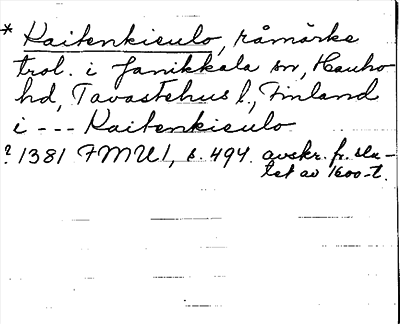 * Kaitenkieulo, råmärke
trol. i Janikkala sn, Hauho
hd, Tavastehus l., Finland
i --- Kaitenkieulo
? 1381 FMU 1, s. 494. avskr. fr. slu-
tet av 1600-t.